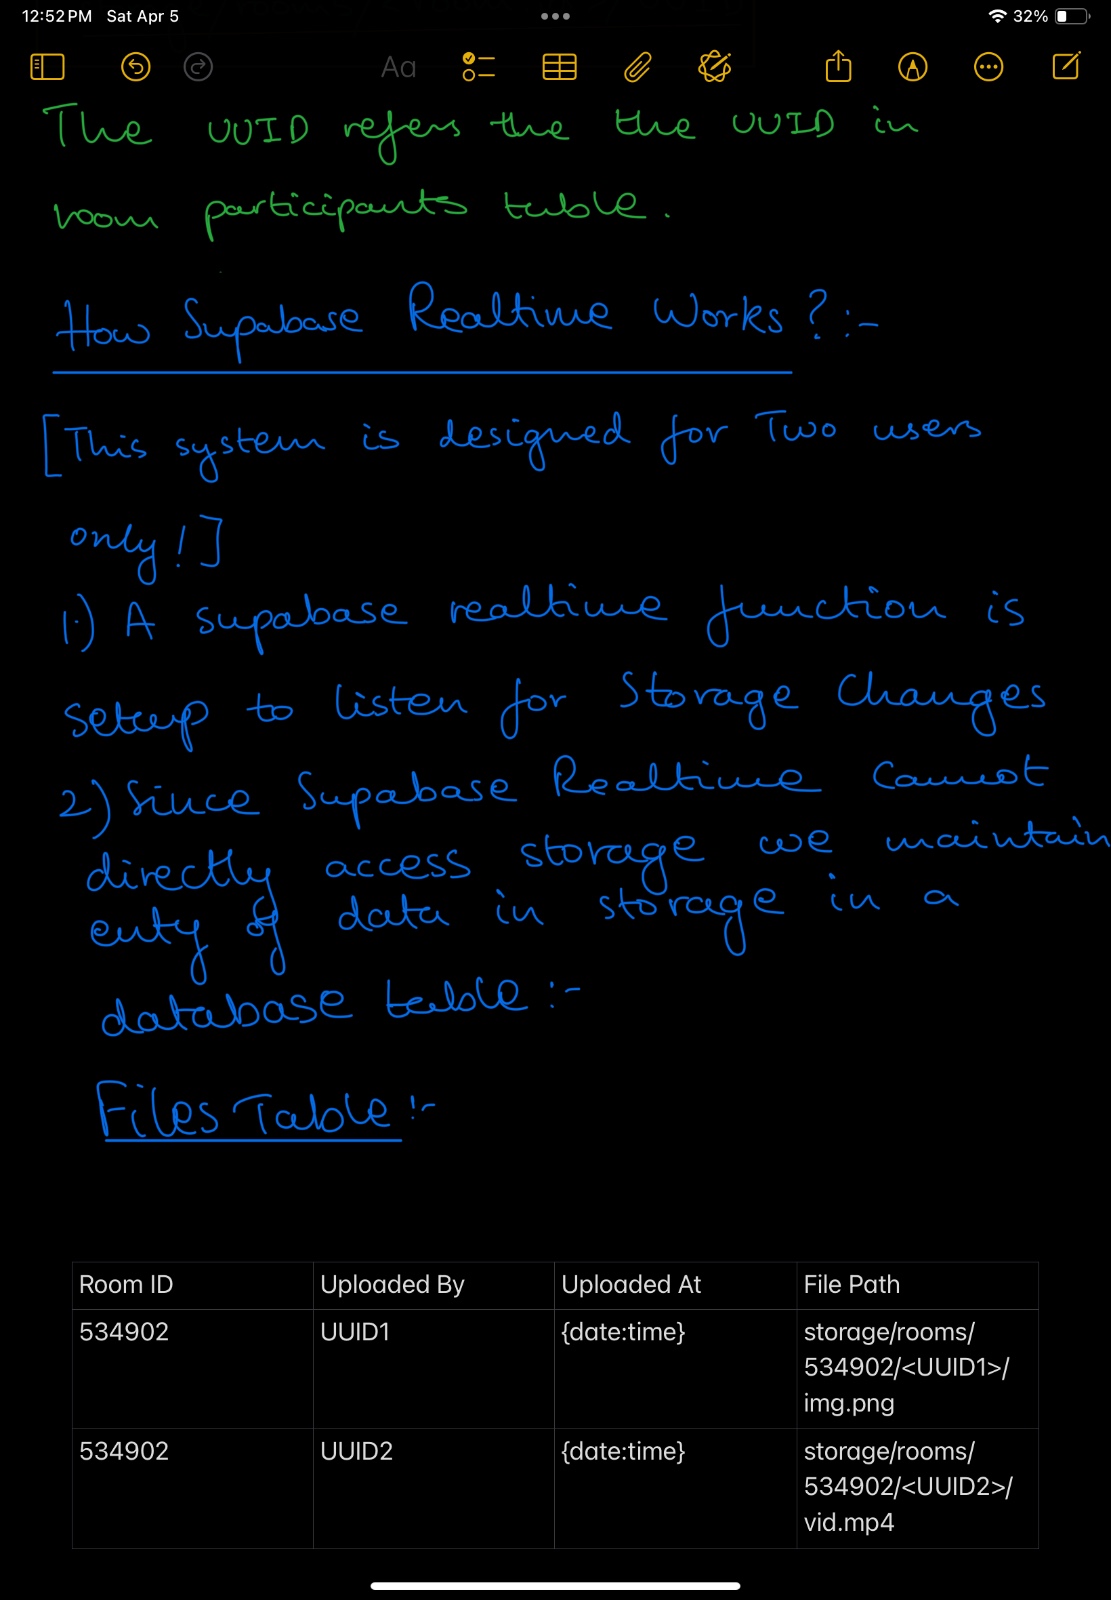 12:52 PM Sat Apr 5
32%
Aa
The UUID refers the the UUID in
room participants table.
How Supabase Realtime Works?:-
[This system is designed for Two users
only!]
1.) A supabase realtime function is
setup to listen for Storage Changes
2) Since Supabase Realtime Cannot
directly access storage we maintain
enty of data in storage in a
database table:-
Files Table:-
Room ID Uploaded By Uploaded At File Path
534902 UUID1 {date:time} storage/rooms/
534902/<UUID1>/
img.png
534902 UUID2 {date:time} storage/rooms/
534902/<UUID2>/
vid.mp4